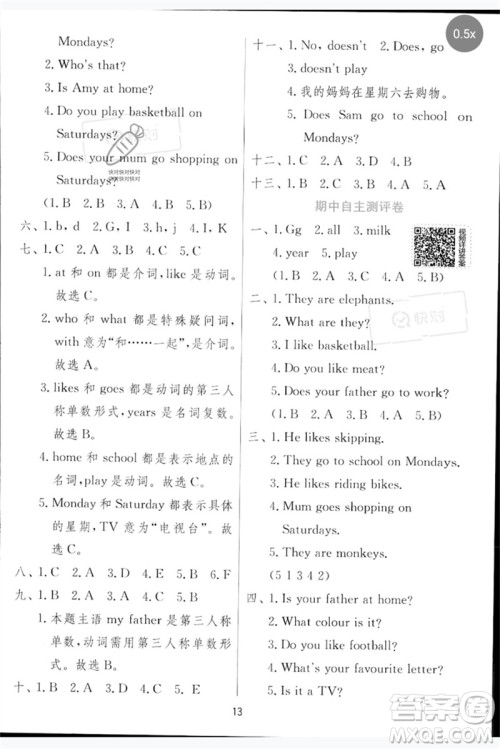 Mondays?
2. Who's that?
3. Is Amy at home?
4. Do you play basketball on
Saturdays?
5. Does your mum go shopping on
Saturdays?
六、1. b, d 2. G, I 3. H, j 4. I, K
七、1. C 2. A 3. B 4. A 5. C
1. at 和 on 是介词, like 是动词。
故选 C。
2. who 和 what 是特殊疑问词,
with 意为“和……一起”, 是介词。
故选 A。
3. likes 和 goes 都是动词的第三人
称单数形式, years 是名词复数。
故选 B。
4. home 和 school 都是表示地点的
名词, play 是动词。故选 A。
5. Monday 和 Saturday 都表示具体
的星期, TV 意为“电视台”。故
选 C。
八、1. C 2. A 3. D 4. E 5. B 6. F
九、1. B 2. A 3. B 4. A 5. B
1. 本题主语 my father 是第三人称
单数, 动词需用第三人称单数形
式。故选 B。
十、1. D 2. C 3. B 4. E 5. A
十一、1. No, doesn't 2. Does, go
3. doesn't play
4. 我的妈妈在星期六去购物。
5. Does Sam go to school on
Mondays?
十二、1. C 2. A 3. D 4. B
十三、1. C 2. B 3. A 4. A 5. B
期中自主测评卷
一、1. Gg 2. all 3. milk
4. year 5. play
(1. D 2. A 3. C 4. A 5. B)
视频讲解答案
二、1. They are elephants.
2. What are they?
3. I like basketball.
4. Do you like meat?
5. Does your father go to work?
(1. B 2. A 3. B 4. A 5. B)
三、1. He likes skipping.
2. They go to school on Mondays.
3. He likes riding bikes.
4. Mum goes shopping on
Saturdays.
5. They are monkeys.
(5 1 3 4 2)
四、1. Is your father at home?
2. What colour is it?
3. Do you like football?
4. What's your favourite letter?
5. Is it a TV?
13
0.5x
快对
快对快对快对
快对快对快对
答案圈
MXQE.COM